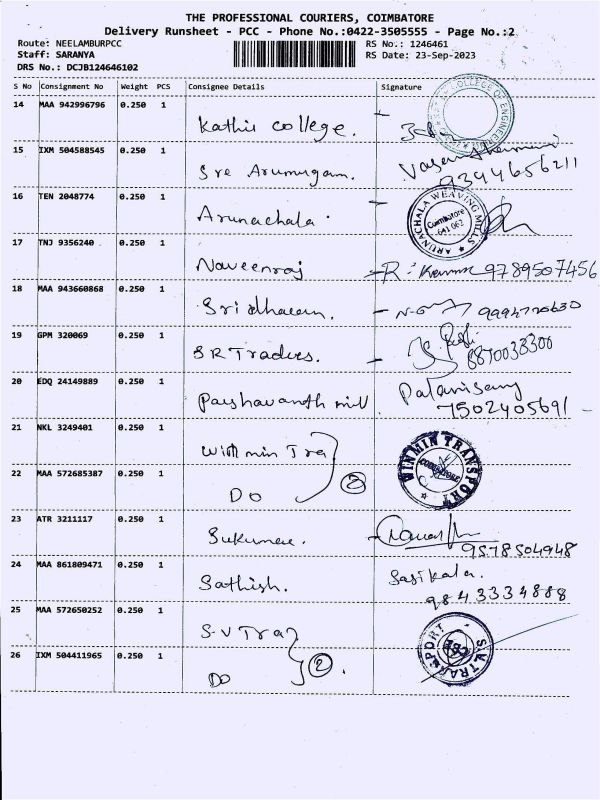 THE PROFESSIONAL COURIERS, COIMBATORE
Delivery Runsheet - PCC - Phone No.:0422-3505555 - Page No.:2
Route: NEELAMBURPCC RS No.: 1246461
Staff: SARANYA RS Date: 23-Sep-2023
DRS No.: DCJB124646102
S No Consignment No Weight PCS Consignee Details Signature
14 MAA 942996796 0.250 1 Kathir college.
COLLEGE OF ENGINEERING
15 IXM 504588545 0.250 1 Sre Arumugam.
9394656211
16 TEN 2048774 0.250 1 Arunachala.
ARUNACHALA WEAVING MILLS
Coimbatore
641 062
17 TNJ 9356240 0.250 1 Naveenraj R. 9789507456
18 MAA 943660868 0.250 1 Sridharan.
19 GPM 320069 0.250 1 SR Traders.
8870038300
20 EDQ 24149889 0.250 1 mill Palanisamy
7502405691
21 NKL 3249401 0.250 1 Win min Tra
WINMIN TRANSPORT
COIMBATORE
22 MAA 572685387 0.250 1 DO 2
23 ATR 3211117 0.250 1 Sukumar.
9578504948
24 MAA 861809471 0.250 1 Sathish. Sasikala.
9843334888
25 MAA 572650252 0.250 1 S-V Tra
S.V. TRANSPORT
26 IXM 504411965 0.250 1 DO 2